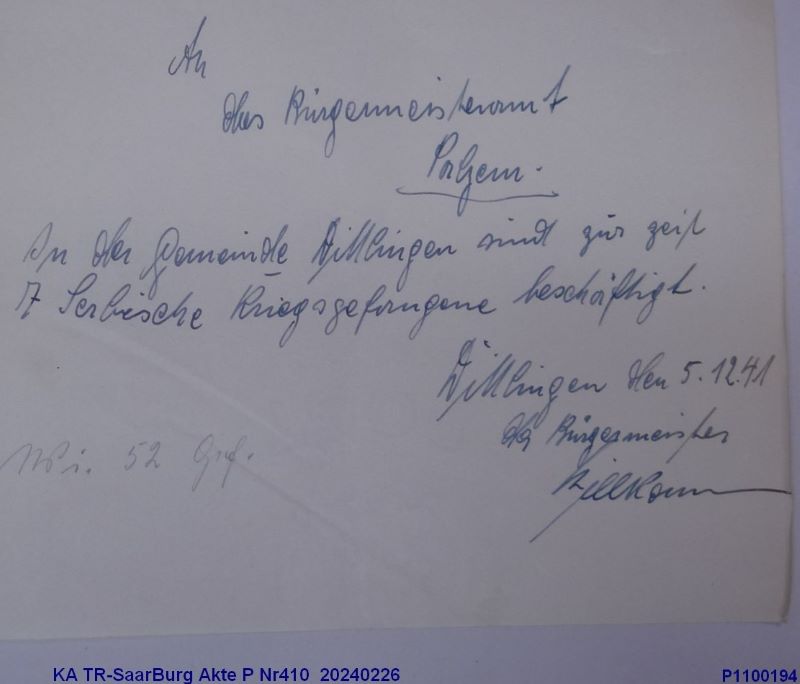 An
das Bürgermeisteramt
Palzem.
In der Gemeinde Dillingen sind zur zeit
7 Serbische Kriegsgefangene beschäftigt.
Dillingen den 5.12.41
der Bürgermeister
52 Gef.
KA TR-SaarBurg Akte P Nr410 20240226
P1100194